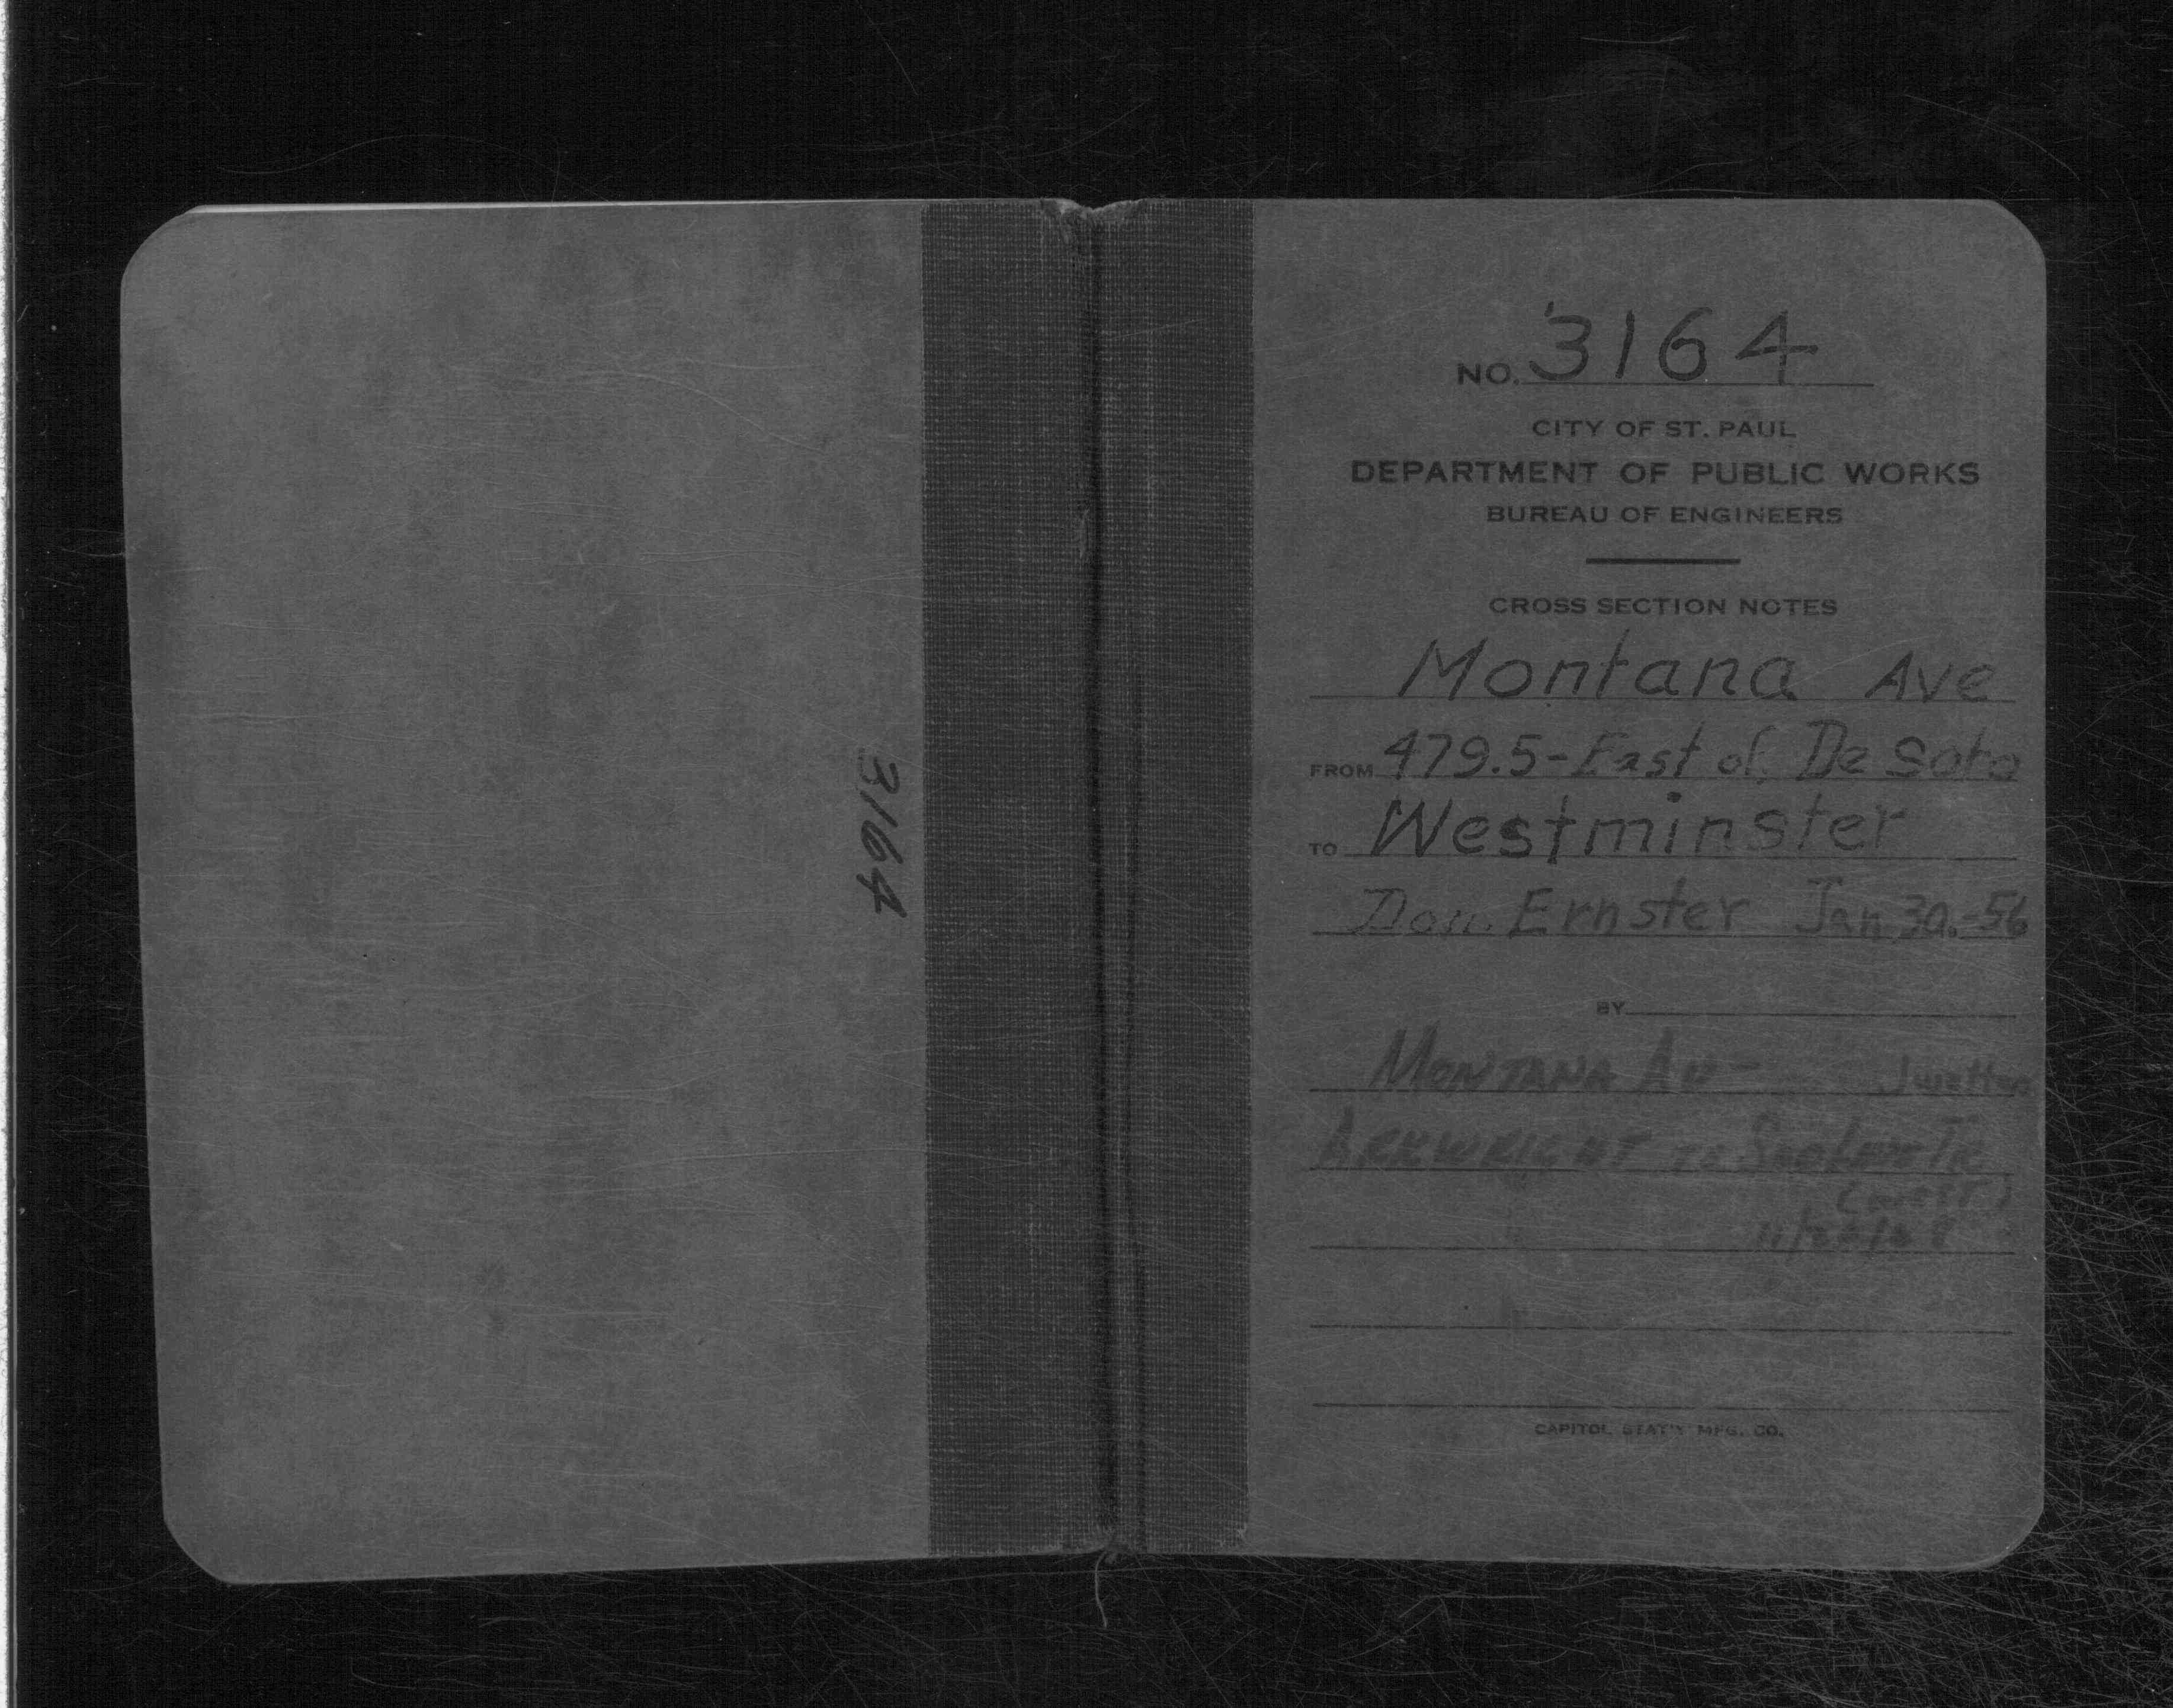 3164
NO. 3164
CITY OF ST. PAUL
DEPARTMENT OF PUBLIC WORKS
BUREAU OF ENGINEERS
CROSS SECTION NOTES
Montana Ave
FROM 479.5-East of De Soto
TO Westminster
Don. Ernster Jan 30.-56
BY
MONTANA AV-
ARKWRIGHT TO
CAPITOL STAT'Y MFG. CO.